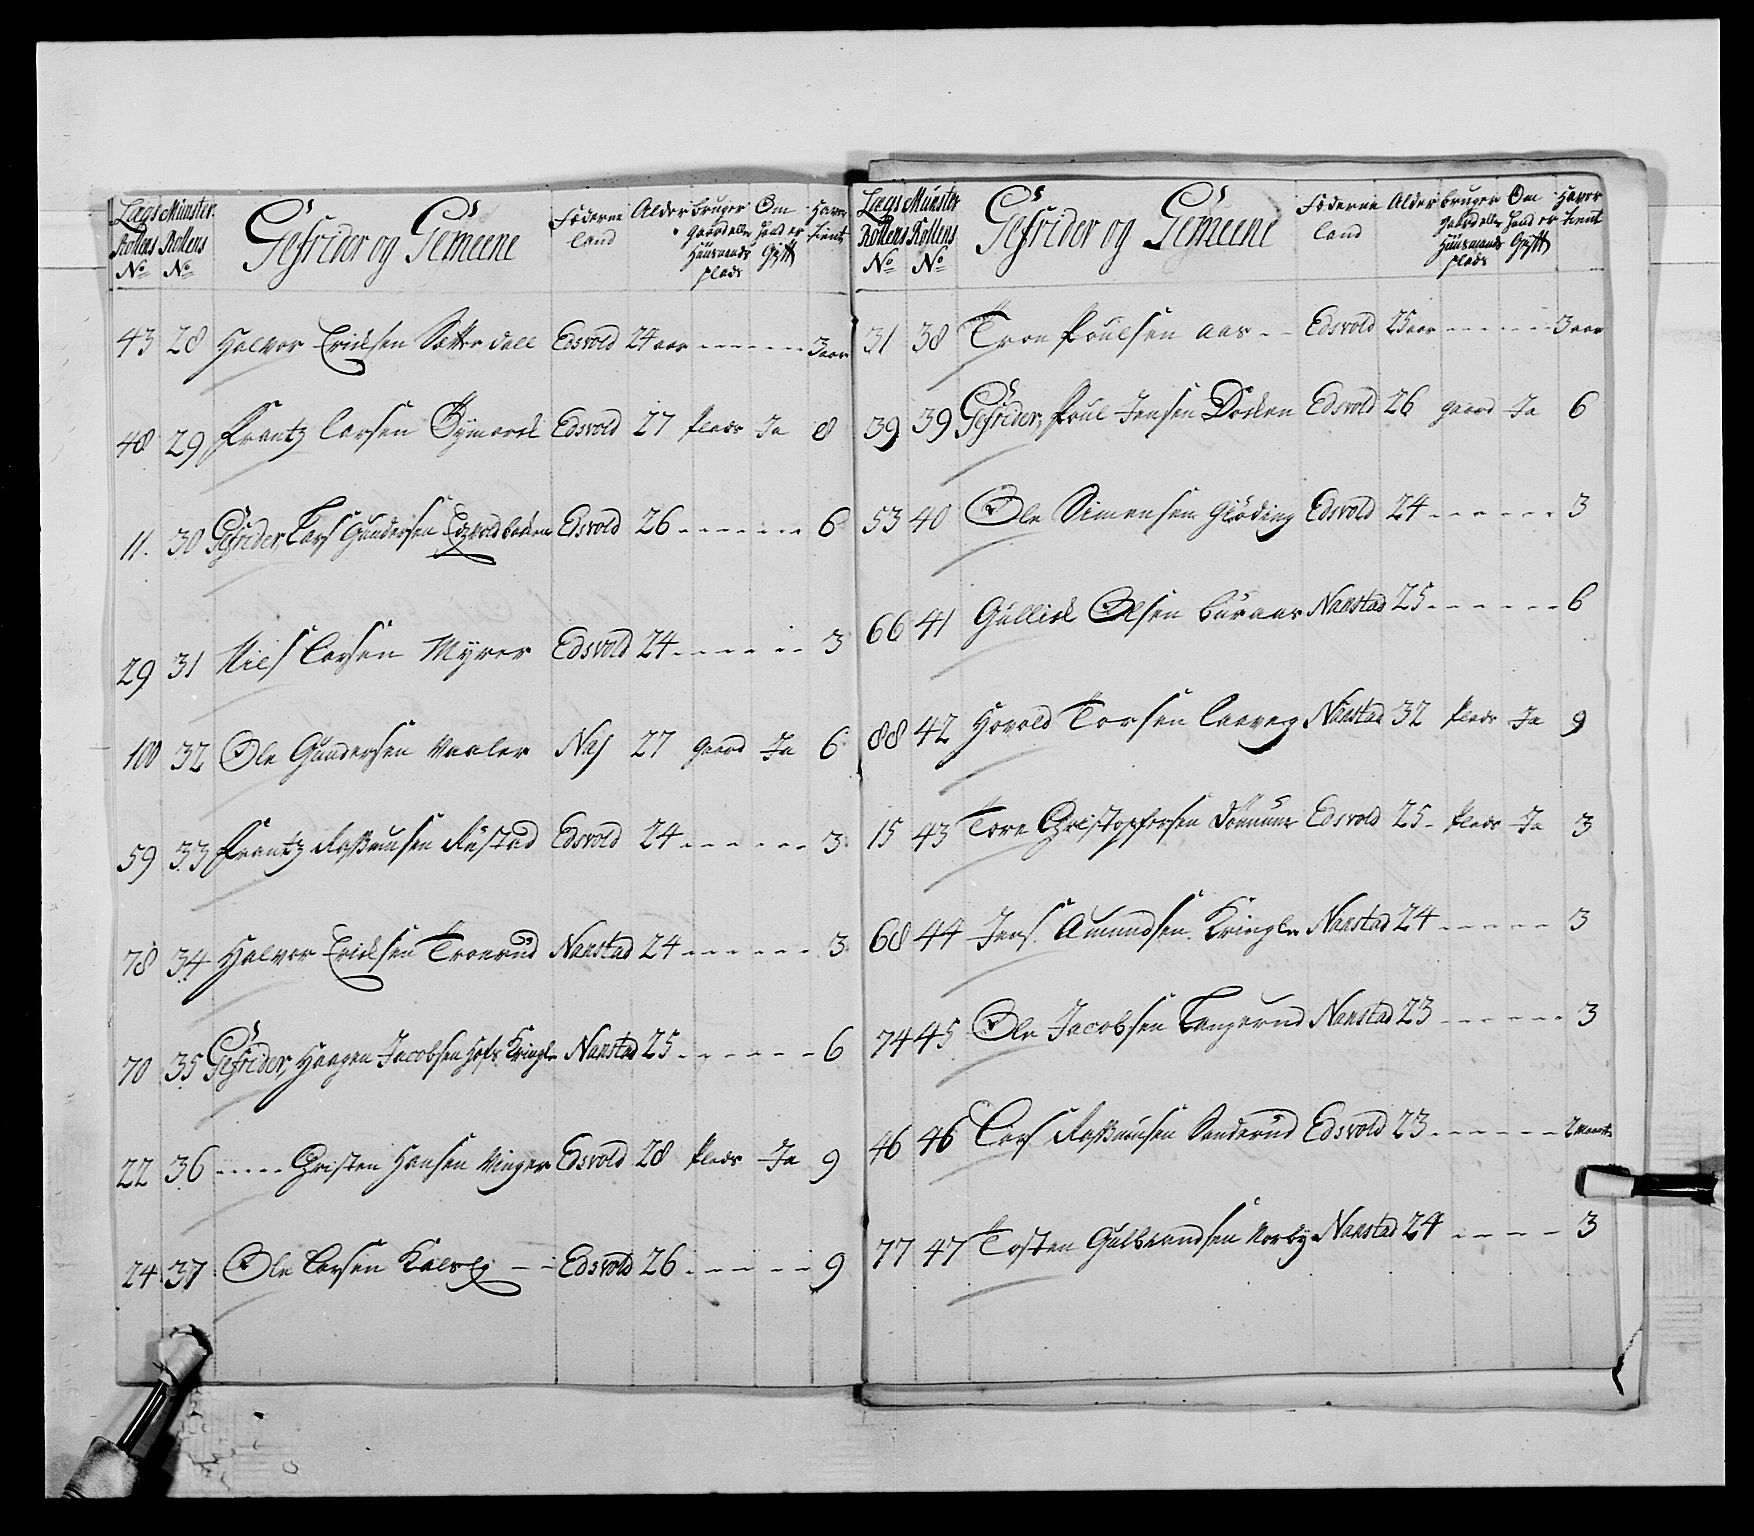 Lægs Rollens No Munster Rollens No Gefrider og Gemeene Föderne land Alder bruger gaard eller Huusmands plads Om hand er Gift Haver tient
43 28 Halver Ericksen Sætter dall Edsvold 24 aar - - - - - - 3 aar
48 29 Frantz Larsen Edsvold 27 Plads Ja 8
11. 30 Gefrider, Lars Gundersen Edsvold 26 - - - - - - 6
29 31 Niels Larsen Myrer Edsvold 24 - - - - - - 3
100 32 Ole Gundersen Vaaler Næs 27 gaard Ja 6
59 33 Frantz Rasmusen Rustad Edsvold 24 - - - - - - 3
78 34 Halver Ericksen Tronrud Nanstad 24 - - - - - - 3
70 35 Gefrider, Haagen Jacobsen Kringle Nanstad 25 - - - - - - 6
22 36 - - - - - Christen Hansen Vinger Edsvold 28 Plads Ja 9
24 37 Ole Larsen Edsvold 26 - - - - - - 9
Lægs Rollens No Munster Rollens No Gefrider og Gemeene Föderne land Alder bruger gaard eller Huusmands plads Om hand er Gift Haver tient
31 38 Tron Poulsen Aas - - Edsvold 25 aar - - - - - - 3 aar
39 39 Gefrider, Poul Jensen Edsvold 26 gaard Ja 6
53 40 Ole Simensen Edsvold 24 - - - - - - 3
66 41 Gullick Olsen Buraas Nanstad 25 - - - - - - 6
88 42 Nanstad 32 Plads Ja 9
15 43 Tore Christophersen Edsvold 25 - Plads Ja 3
68 44 Jens Amundsen Kringle Nanstad 24 - - - - - 3
74 45 Ole Jacobsen Tangerud Nanstad 23 - - - - - - 3
46 46 Lars Rasmusen Sanderud Edsvold 23 - - - - - - 2
77 47 Tosten Gulbrandsen Norby Nanstad 24 - - - - - 3